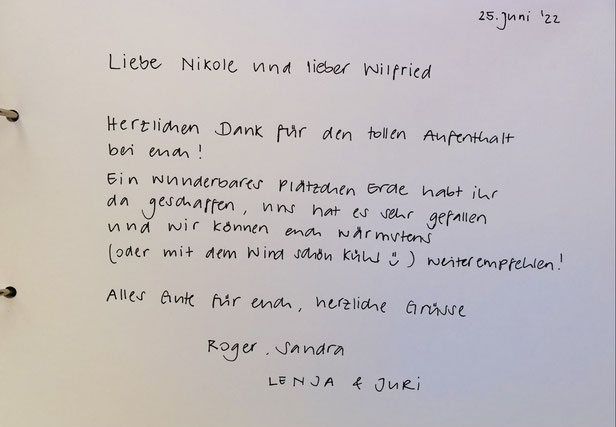 25. Juni '22
Liebe Nikole und lieber Wilfried
Herzlichen Dank für den tollen Aufenthalt
bei euch!
Ein wunderbares Plätzchen Erde habt ihr
da geschaffen, uns hat es sehr gefallen
und wir können euch wärmstens
(oder mit dem Wind schön kühl ☺) weiterempfehlen!
Alles Gute für euch, herzliche Grüsse
Roger, Sandra
LENJA & JURI